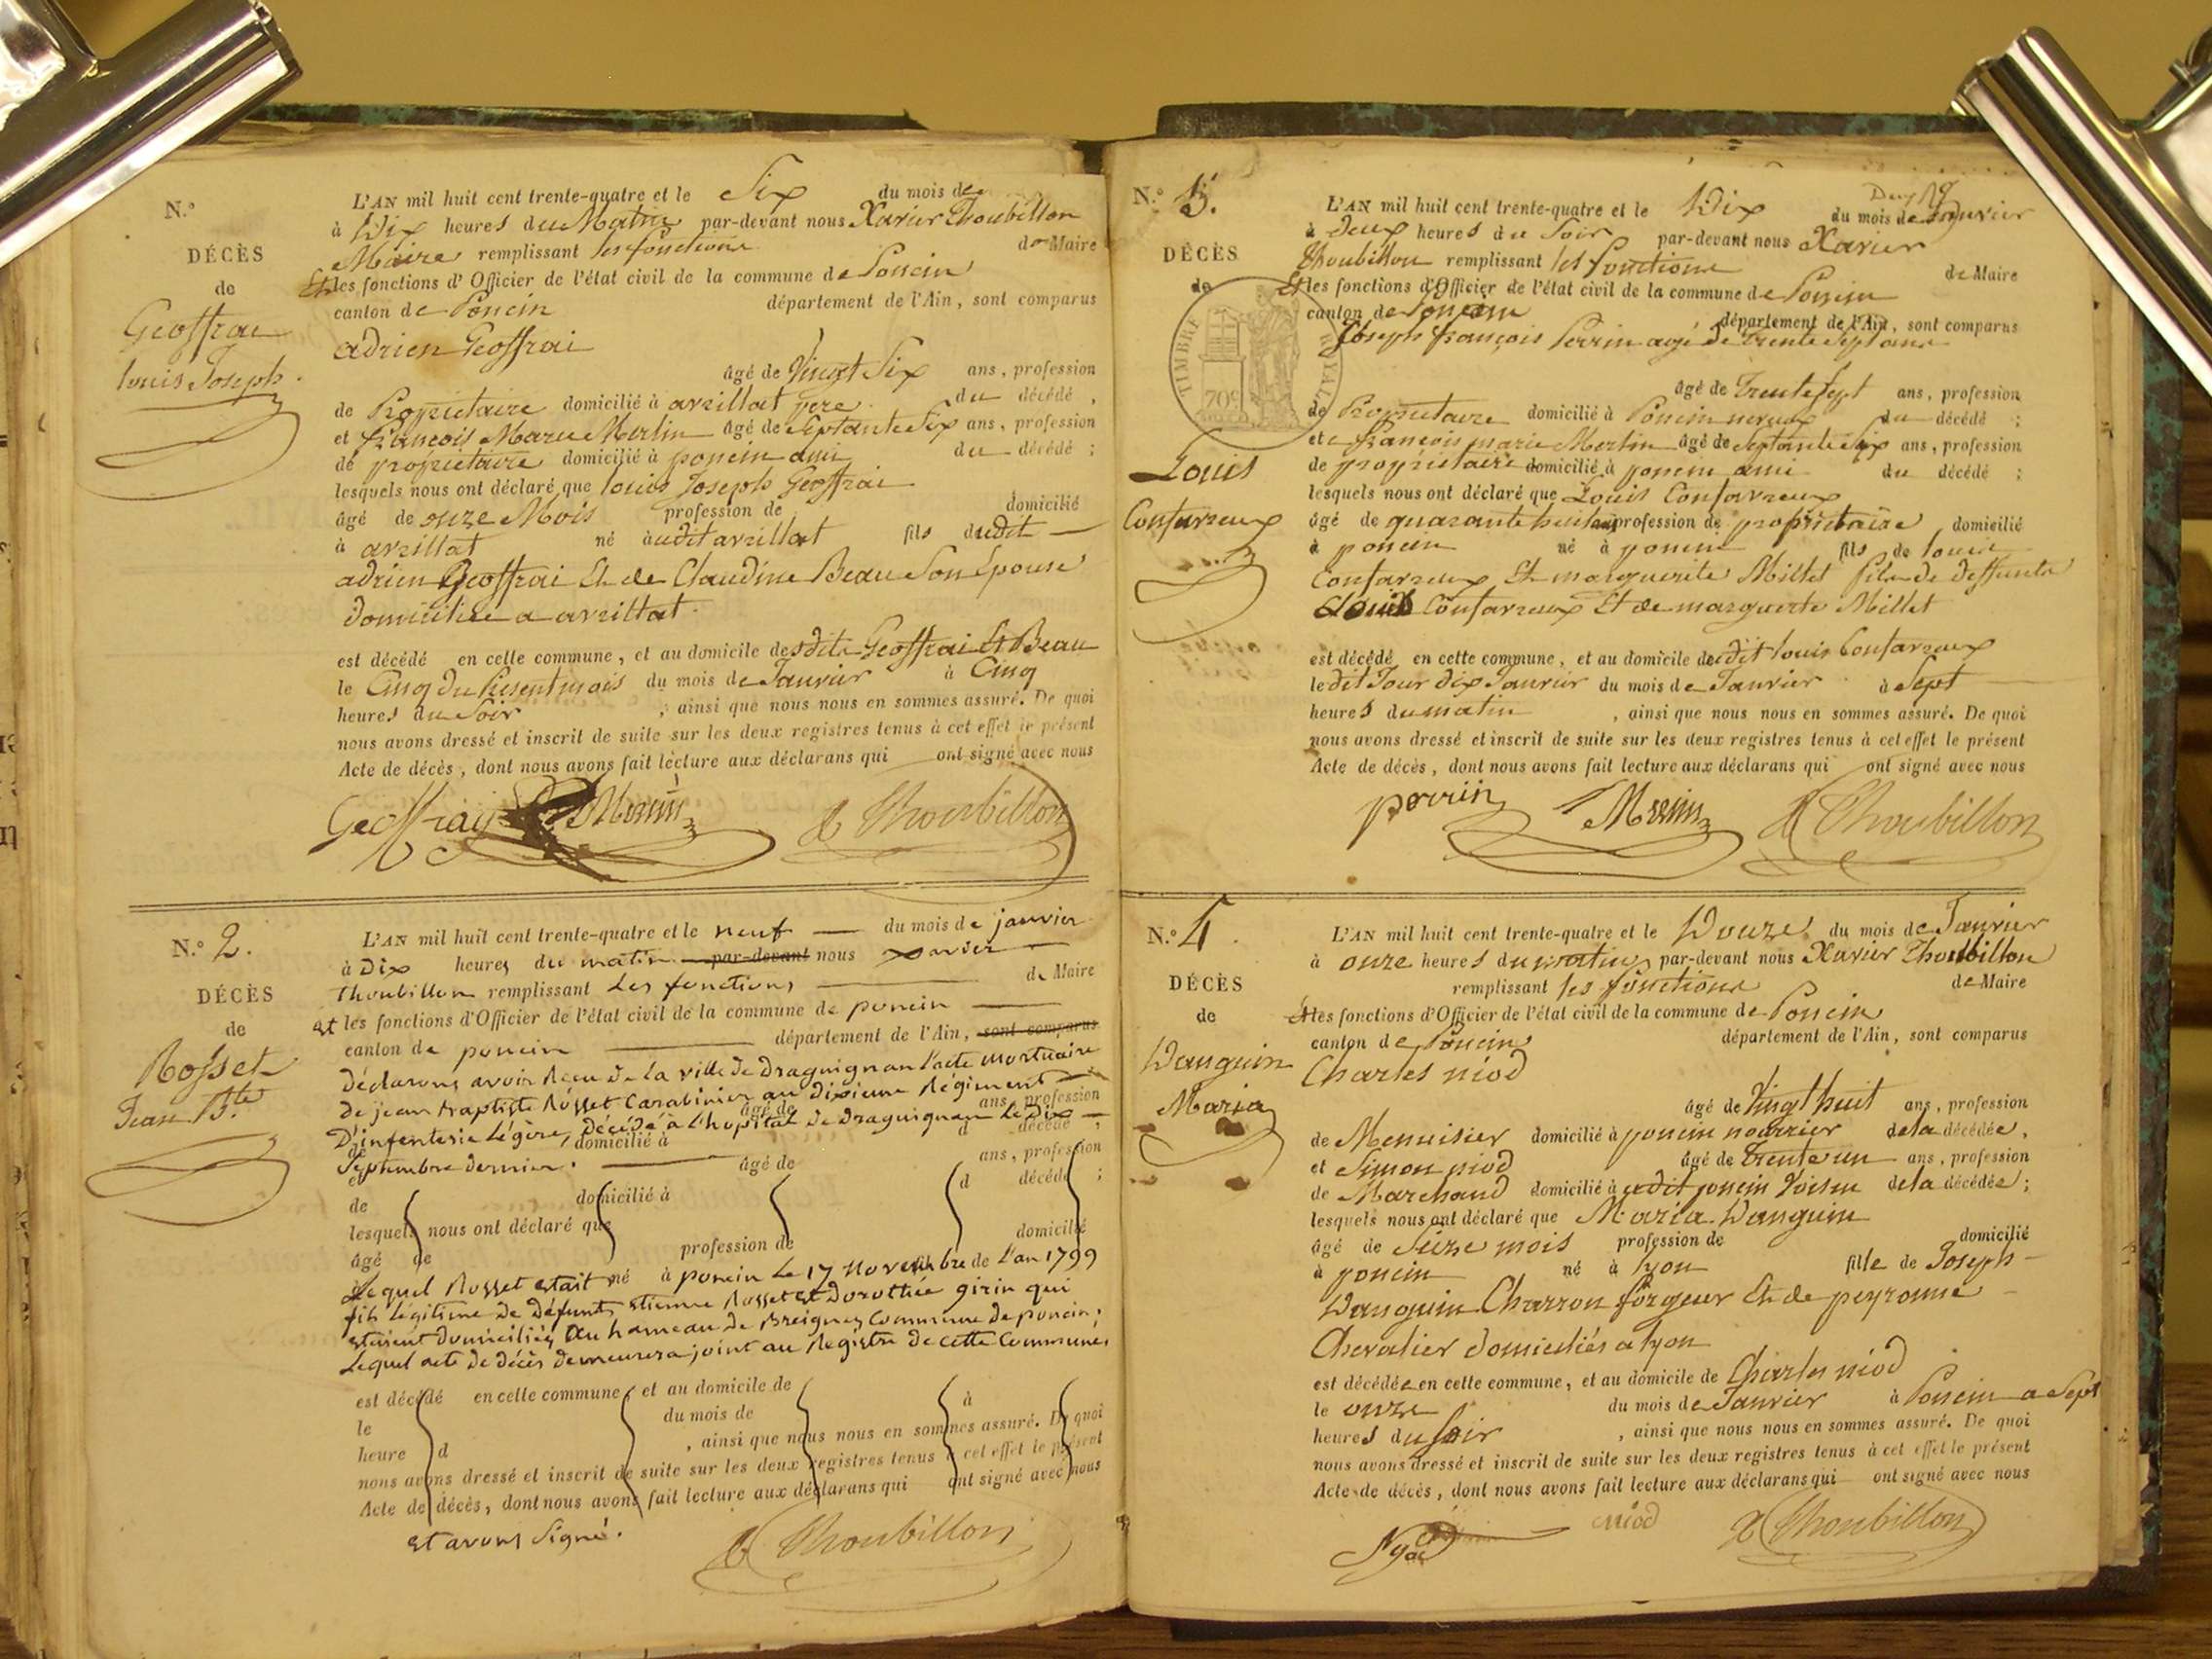 N.º
DÉCÈS
de
Geoffrai
louis Joseph.
L'AN mil huit cent trente-quatre et le Six du mois de
à Dix heures du Matin par-devant nous Xavier Thoubillon
Maire remplissant les fonctions de Maire
Et les fonctions d'Officier de l'état civil de la commune de Poncin
canton de Poncin département de l'Ain, sont comparus
adrien Geoffrai
âgé de Vingt Six ans, profession
de Propriétaire domicilié à arsillat pere du décédé,
et françois Marie Merlin âgé de Septante Six ans, profession
de propriétaire domicilié à poncin ami du décédé;
lesquels nous ont déclaré que louis Joseph Geoffrai
âgé de onze Mois profession de domicilié
à arsillat né à udit arsillat fils dudit
adrien Geoffrai Et de Claudine Beau Son Epouse
domiciliée a arsillat.
est décédé en cette commune, et au domicile desdits Geoffrai Et Beau
le Cinq du Présent mois du mois de Janvier à Cinq
heures du Soir, ainsi que nous nous en sommes assuré. De quoi
nous avons dressé et inscrit de suite sur les deux registres tenus à cet effet le présent
Acte de décès, dont nous avons fait lecture aux déclarans qui ont signé avec nous
Geoffray Merlin X Thoubillon
N.º 2.
DÉCÈS
de
Rosset
Jean B.te
L'AN mil huit cent trente-quatre et le neuf du mois de janvier
à Dix heures du matin par-devant nous xavier
Thoubillon remplissant les fonctions de Maire
et les fonctions d'Officier de l'état civil de la commune de poncin
canton de poncin département de l'Ain, sont comparus
Déclarons avoir Reçu de la ville de Draguignan l'acte mortuaire
de jean baptiste Rosset Carabinier au dixieme Régiment
âgé de ans, profession
D'infenterie légère, décédé à l'hopital de Draguignan le Dix
de domicilié à d décédé,
Septembre dernier.
et âgé de ans, profession
de domicilié à d décédé;
lesquels nous ont déclaré que
âgé de profession de domicilié
Lequel Rosset etait né à poncin le 17 Novembre de l'an 1799
fils légitime de défunts etienne Rosset et Dorothée girin qui
etaient domiciliés au hameau de Breignes Commune de poncin;
Lequel acte de décès demeurera joint au Registre de cette Commune,
est décédé en cette commune, et au domicile de
le du mois de à
heure d, ainsi que nous nous en sommes assuré. De quoi
nous avons dressé et inscrit de suite sur les deux registres tenus à cet effet le présent
Acte de décès, dont nous avons fait lecture aux déclarans qui ont signé avec nous
et avons Signé.
X Thoubillon
N.º 3.
DÉCÈS
de
TIMBRE ROYAL
70c
Louis
Confavreux
L'AN mil huit cent trente-quatre et le Dix du mois de Janvier
à Deux heures du Soir par-devant nous Xavier
Thoubillon remplissant les fonctions de Maire
Et les fonctions d'Officier de l'état civil de la commune de Poncin
canton de Poncin département de l'Ain, sont comparus
Joseph françois Perrin agé de trente Sept ans
âgé de Trente Sept ans, profession
de Propriétaire domicilié à Poncin neveux du décédé;
et françois marie Merlin âgé de Septante Six ans, profession
de propriétaire domicilié à poncin ami du décédé;
lesquels nous ont déclaré que Louis Confavreux
âgé de quarante huit ans profession de propriétaire domicilié
à poncin né à poncin fils de louis
Confavreux Et marguerite Millet fils de deffunts
Louis Confavreux Et de marguerite Millet
est décédé en cette commune, et au domicile dudit louis Confavreux
ledit Jour dix Janvier du mois de Janvier à Sept
heures du matin, ainsi que nous nous en sommes assuré. De quoi
nous avons dressé et inscrit de suite sur les deux registres tenus à cet effet le présent
Acte de décès, dont nous avons fait lecture aux déclarans qui ont signé avec nous
perrin Merlin X Thoubillon
N.º 4.
DÉCÈS
de
Danguin
Maria
L'AN mil huit cent trente-quatre et le Douze du mois de Janvier
à onze heures du matin par-devant nous Xavier Thoubillon
remplissant les fonctions de Maire
Et les fonctions d'Officier de l'état civil de la commune de Poncin
canton de Poncin département de l'Ain, sont comparus
Charles niod
âgé de Vingt huit ans, profession
de Menuisier domicilié à poncin nourrier de la décédée,
et Simon niod âgé de Trente un ans, profession
de Marchand domicilié à udit poncin Voisin de la décédée;
lesquels nous ont déclaré que Maria Danguin
âgé de Seize mois profession de domicilié
à poncin né à lyon fille de Joseph
Danguin Charron forgeur Et de peyronne
Chevalier domiciliés a lyon
est décédée en cette commune, et au domicile de Charles niod
le onze du mois de Janvier à Poncin a Sept
heures du Soir, ainsi que nous nous en sommes assuré. De quoi
nous avons dressé et inscrit de suite sur les deux registres tenus à cet effet le présent
Acte de décès, dont nous avons fait lecture aux déclarans qui ont signé avec nous
niod X Thoubillon